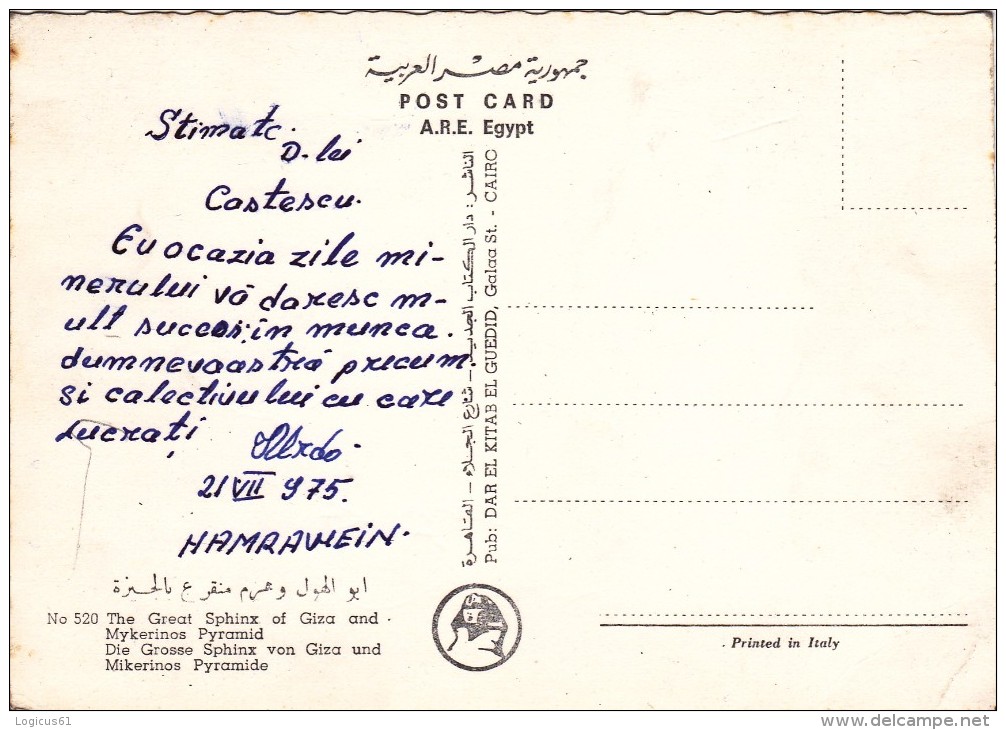 جمهورية مصر العربية
POST CARD
A.R.E. Egypt
Stimate
D-lui
Costescu.
Cu ocazia zile mi-
nerului vă doresc m-
ult succes în munca
dumnevoastră precum
si calectivului cu care
lucrați
21 VII 975.
HAMRAWEIN.
الناشر: دار الكتاب الجديد - شارع الجلاء - القاهرة
Pub: DAR EL KITAB EL GUEDID, Galaa St. - CAIRO
ابو الهول وهرم منقرع بالجيزة
No 520 The Great Sphinx of Giza and
Mykerinos Pyramid
Die Grosse Sphinx von Giza und
Mikerinos Pyramide
Printed in Italy
Logicus61
www.delcampe.net